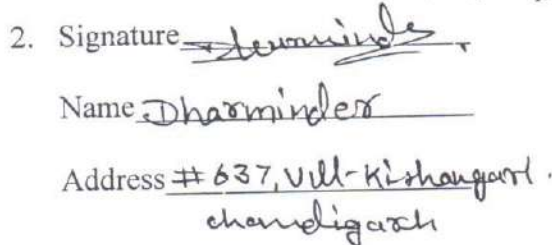 2. Signature Dharminder
Name Dharminder
Address # 637, Vill-Kishangarh.
chandigarh